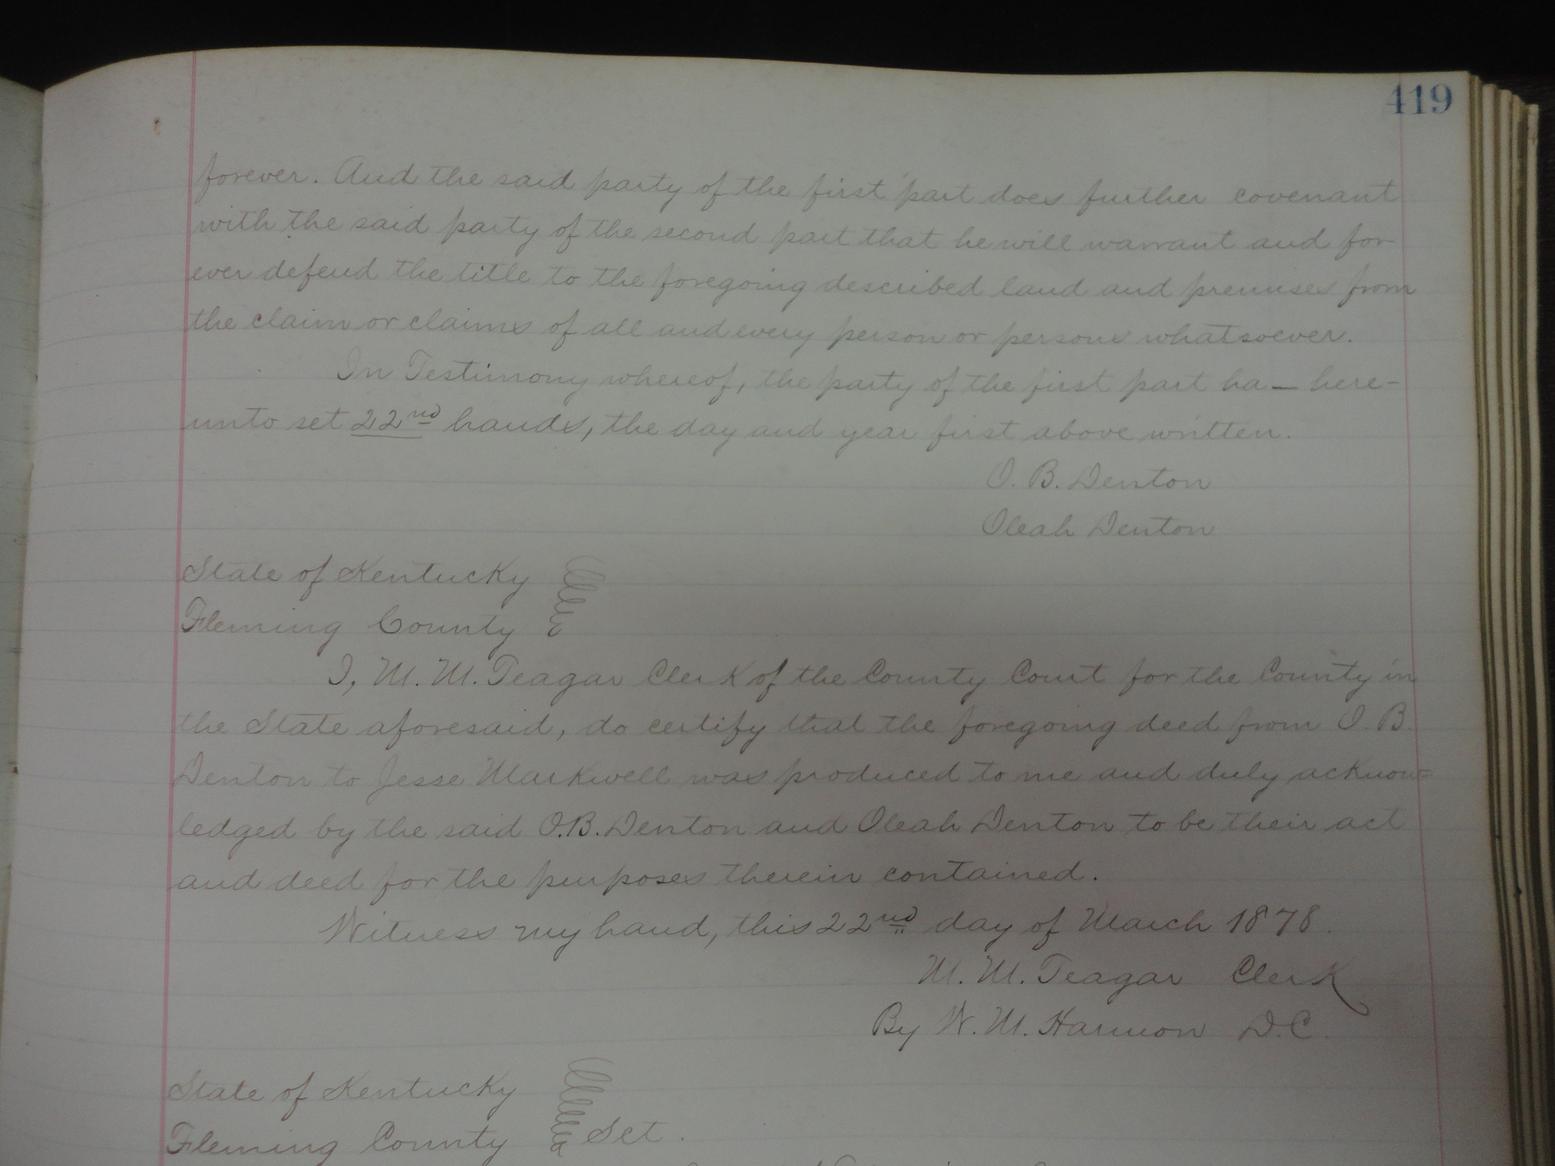 419
forever. And the said party of the first part does further covenant
with the said party of the second part that he will warrant and for
ever defend the title to the foregoing described land and premises from
the claim or claims of all and every person or persons whatsoever.
In Testimony whereof, the party of the first part ha— here-
unto set 22nd hands, the day and year first above written.
O. B. Denton
Oleah Denton
State of Kentucky
Fleming County
I, M. M. Teagar Clerk of the County Court for the County in
the State aforesaid, do certify that the foregoing deed from O. B.
Denton to Jesse Markwell was produced to me and duly acknow=
ledged by the said O.B. Denton and Oleah Denton to be their act
and deed for the purposes therein contained.
Witness my hand, this 22nd day of March 1878.
M. M. Teagar Clerk
By W. M. Harmon D.C.
State of Kentucky
Fleming County Sct.